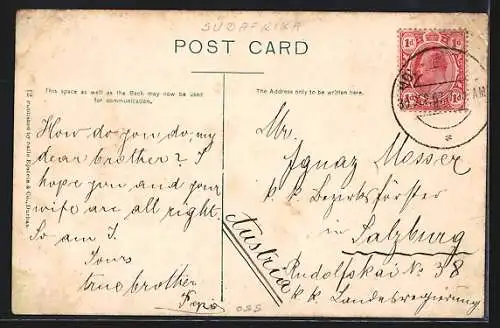 SÜDAFRIKA
POST CARD
This space as well as the Back may now be used
for communication.
The Address only to be written here.
1d 1d
How do you do, my
dear brother? I
hope you and your
wife are all right.
So am I.
Yours
true brother
Mr.
Ignaz Messer
k. k. Bezirksförster
in Salzburg
Austria
Rudolfskai No 38
k. k. Landesregierung
OSS